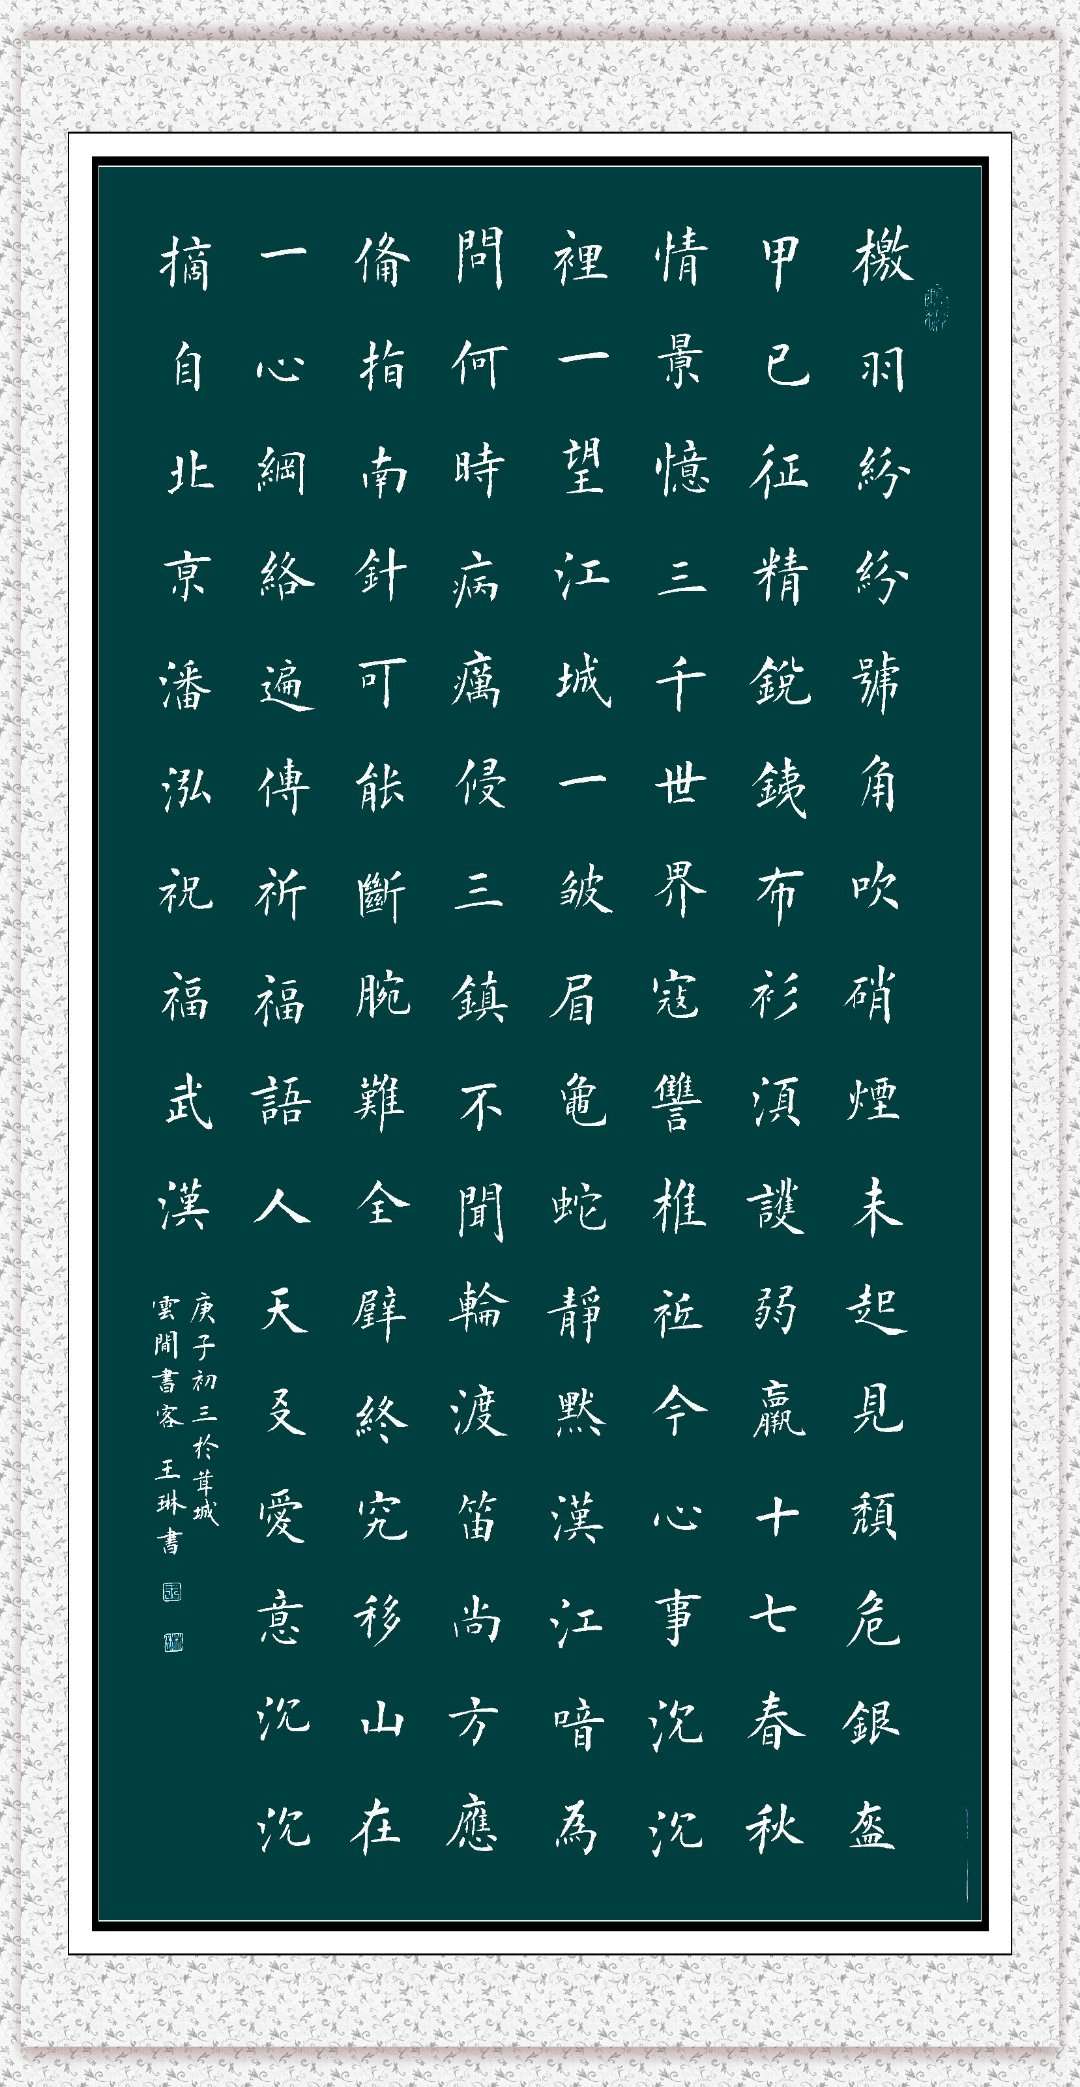 檄羽紛紛號角吹硝煙未起見頹危銀盔
甲已征精銳銕布衫須護弱羸十七春秋
情景憶三千世界寇讐椎祗今心事沉沉
裡一望江城一皱眉龜蛇靜默漢江喑為
問何時病癘侵三鎮不聞輪渡笛尚方應
備指南針可能斷腕難全壁終究移山在
一心網絡遍傳祈福語人天爱意沉沉
摘自北京潘泓祝福武漢
庚子初三於茸城
雲間書客王琳書